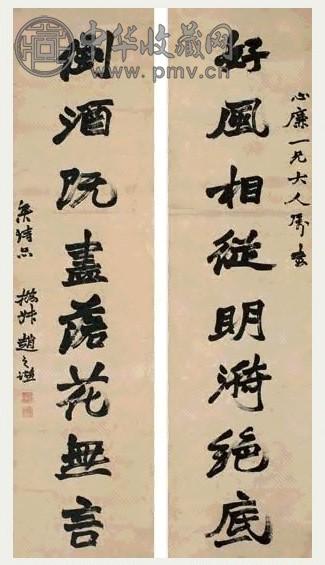 中华收藏网
www.pmv.cn
心廉一兄大人屬書
好風相從明漪絶底
倒酒既盡落花無言
集詩品 撝叔趙之謙